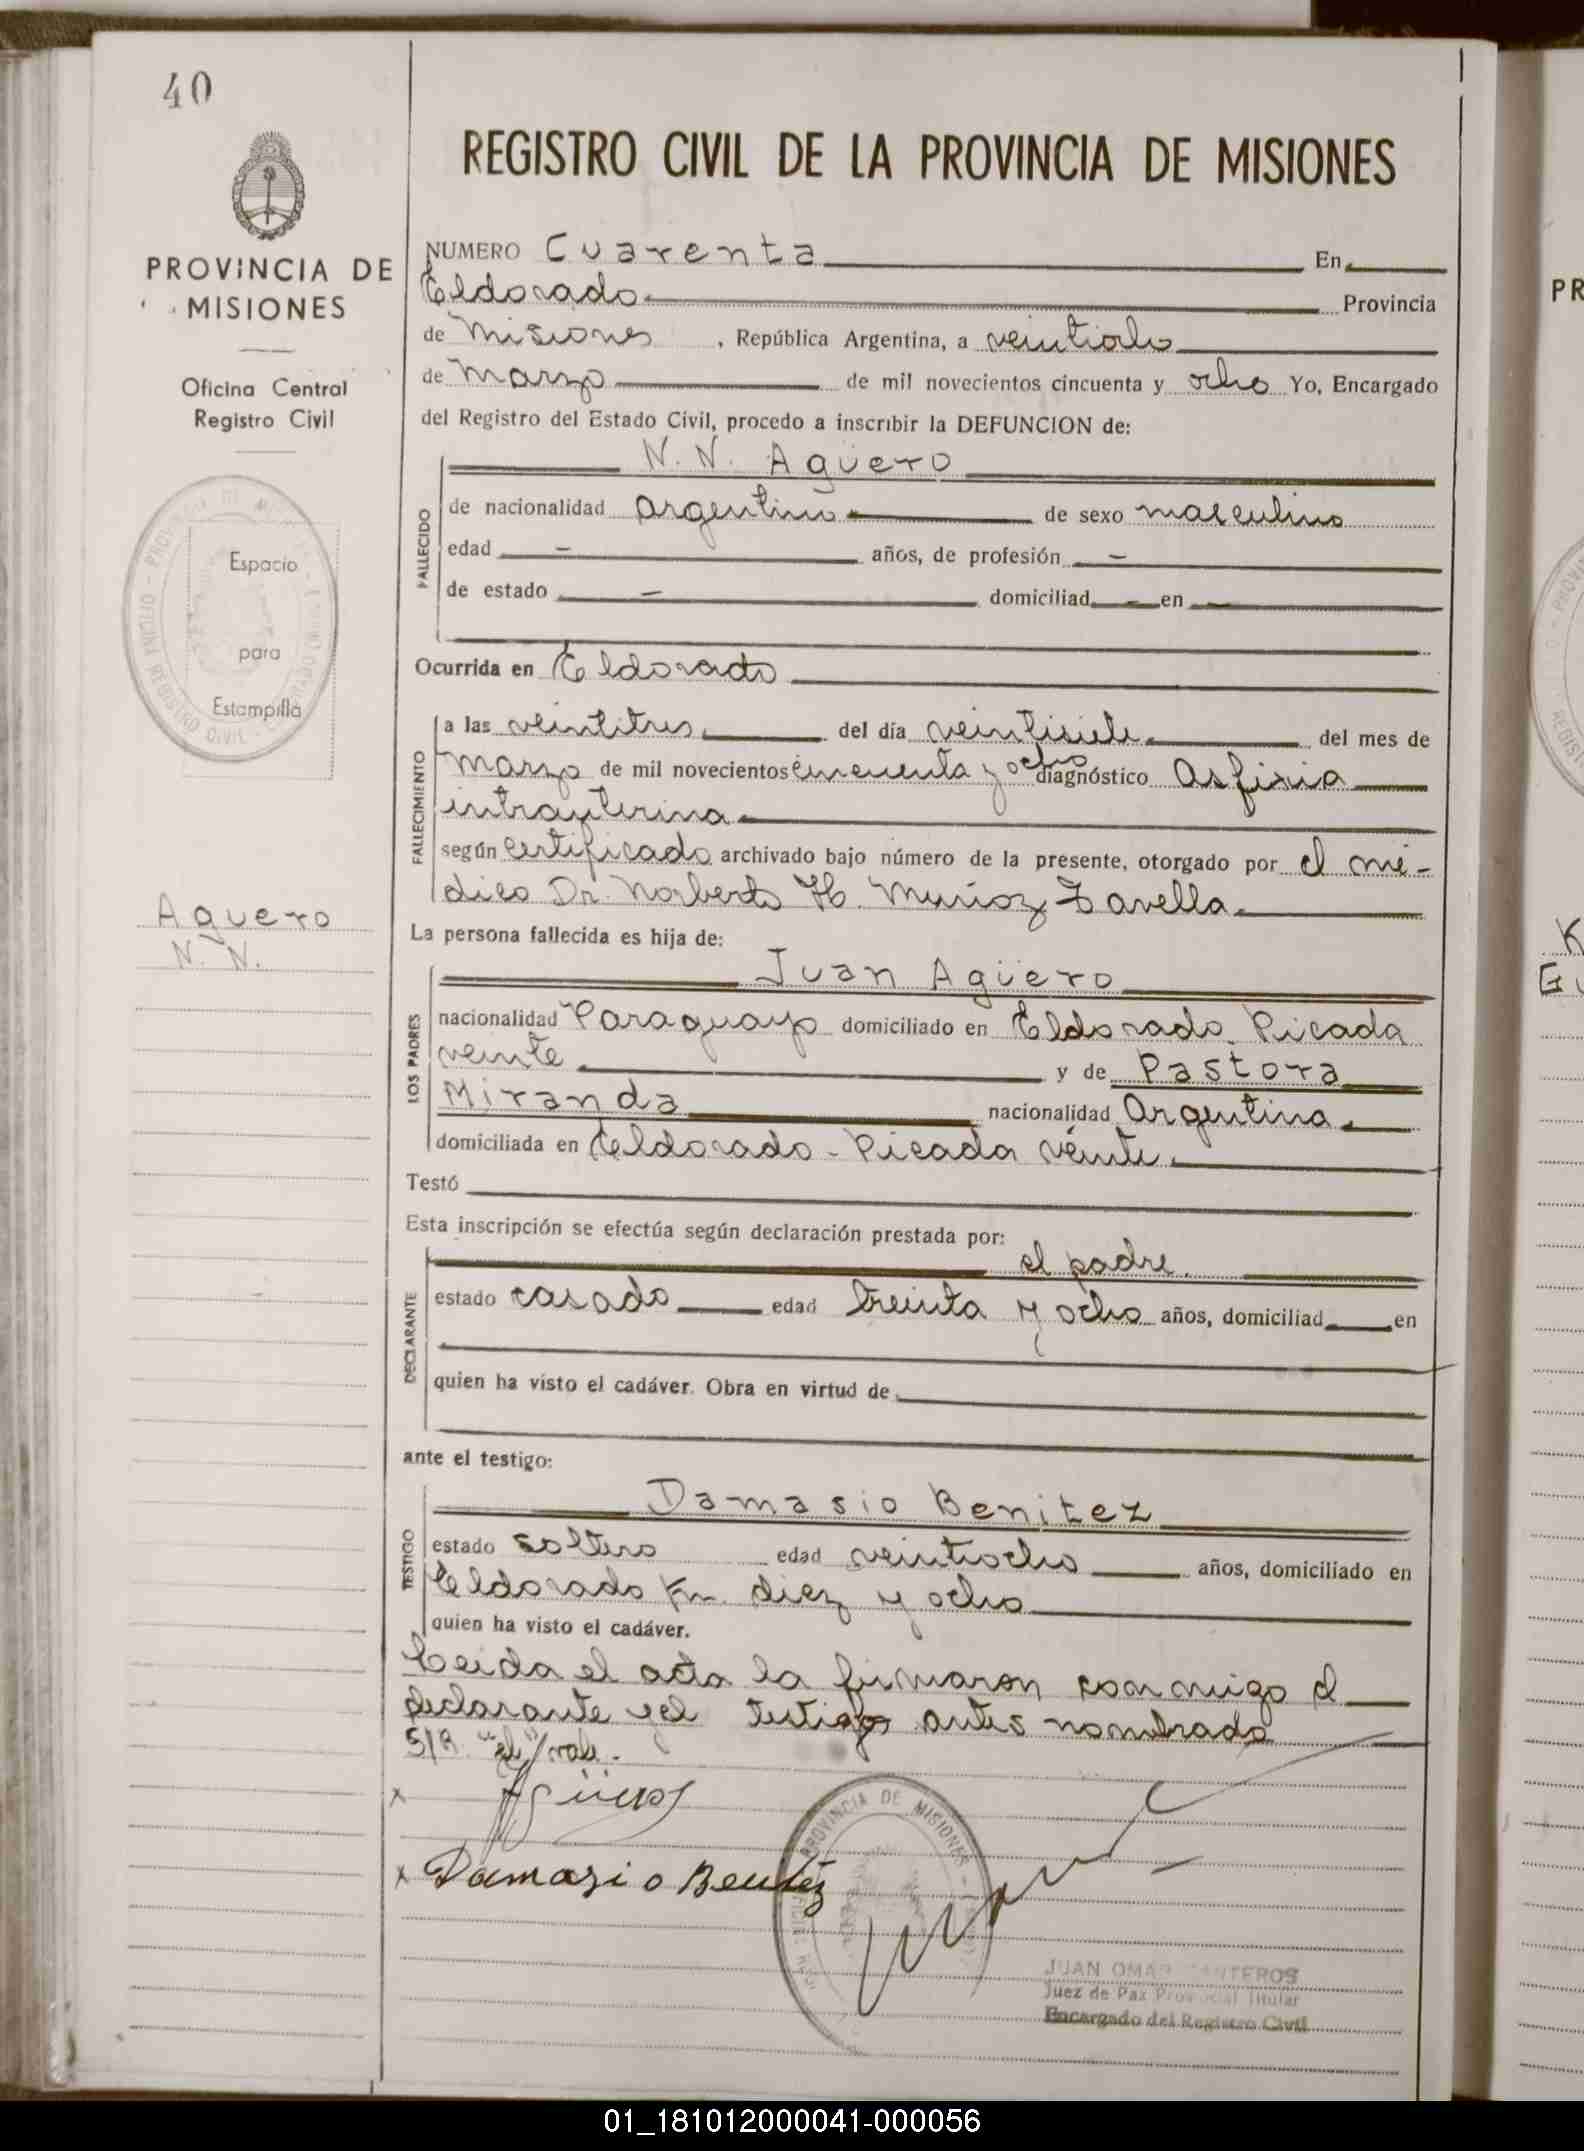 40
PROVINCIA DE
MISIONES
Oficina Central
Registro Civil
Espacio
para
Estampilla
Aguero
N. N.
REGISTRO CIVIL DE LA PROVINCIA DE MISIONES
NUMERO Cuarenta En
Eldorado Provincia
de Misiones , República Argentina, a veintiocho
de Marzo de mil novecientos cincuenta y ocho Yo, Encargado
del Registro del Estado Civil, procedo a inscribir la DEFUNCION de:
N. N. Agüero
FALLECIDO
de nacionalidad argentino de sexo masculino
edad - años, de profesión -
de estado - domiciliad - en -
Ocurrida en Eldorado
FALLECIMIENTO
a las veintitres del día veintisiete del mes de
Marzo de mil novecientos cincuenta y ocho diagnóstico Asfixia
intrauterina
según certificado archivado bajo número de la presente, otorgado por el mé-
dico Dr. Norberto H. Muñoz Zavella
La persona fallecida es hija de:
Juan Agüero
LOS PADRES
nacionalidad Paraguayo domiciliado en Eldorado Picada
veinte y de Pastora
Miranda nacionalidad Argentina
domiciliada en Eldorado - Picada veinte
Testó
Esta inscripción se efectúa según declaración prestada por:
el padre.
DECLARANTE
estado casado edad treinta y ocho años, domiciliad en
quien ha visto el cadáver. Obra en virtud de
ante el testigo:
Damasio Benitez
TESTIGO
estado soltero edad veintiocho años, domiciliado en
Eldorado Km. diez y ocho
quien ha visto el cadáver.
Leida el acta la firmaron conmigo el
declarante y el testigo antes nombrado
S/R "el"/vale.
x Agüero
x Damazio Benitéz
PROVINCIA DE MISIONES
JUAN OMAR CANTEROS
Juez de Paz Provincial Titular
Encargado del Registro Civil
PR
K
Gu
01_181012000041-000056